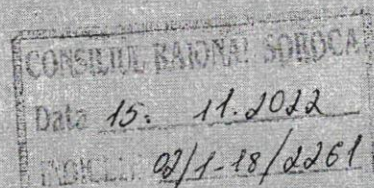 CONSILIUL RAIONAL SOROCA
Data 15. 11.2022
02/1-18/2261